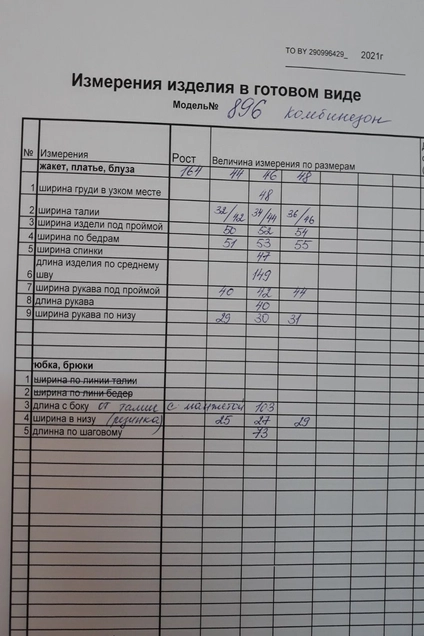 ТО BY 290996429_ 2021г
Измерения изделия в готовом виде
Модель№ 896 комбинезон
№ Измерения Рост Величина измерения по размерам
жакет, платье, блуза 164 44 46 48
1 ширина груди в узком месте 48
2 ширина талии 32/42 34/44 36/46
3 ширина издели под проймой 50 52 54
4 ширина по бедрам 51 53 55
5 ширина спинки 47
6 длина изделия по среднему шву 149
7 ширина рукава под проймой 40 42 44
8 длина рукава 40
9 ширина рукава по низу 29 30 31
юбка, брюки
1 ширина по линии талии
2 ширина по лини бедер
3 длина с боку от талии с манжетой 103
4 ширина в низу (резинка) 25 27 29
5 длинна по шаговому 73